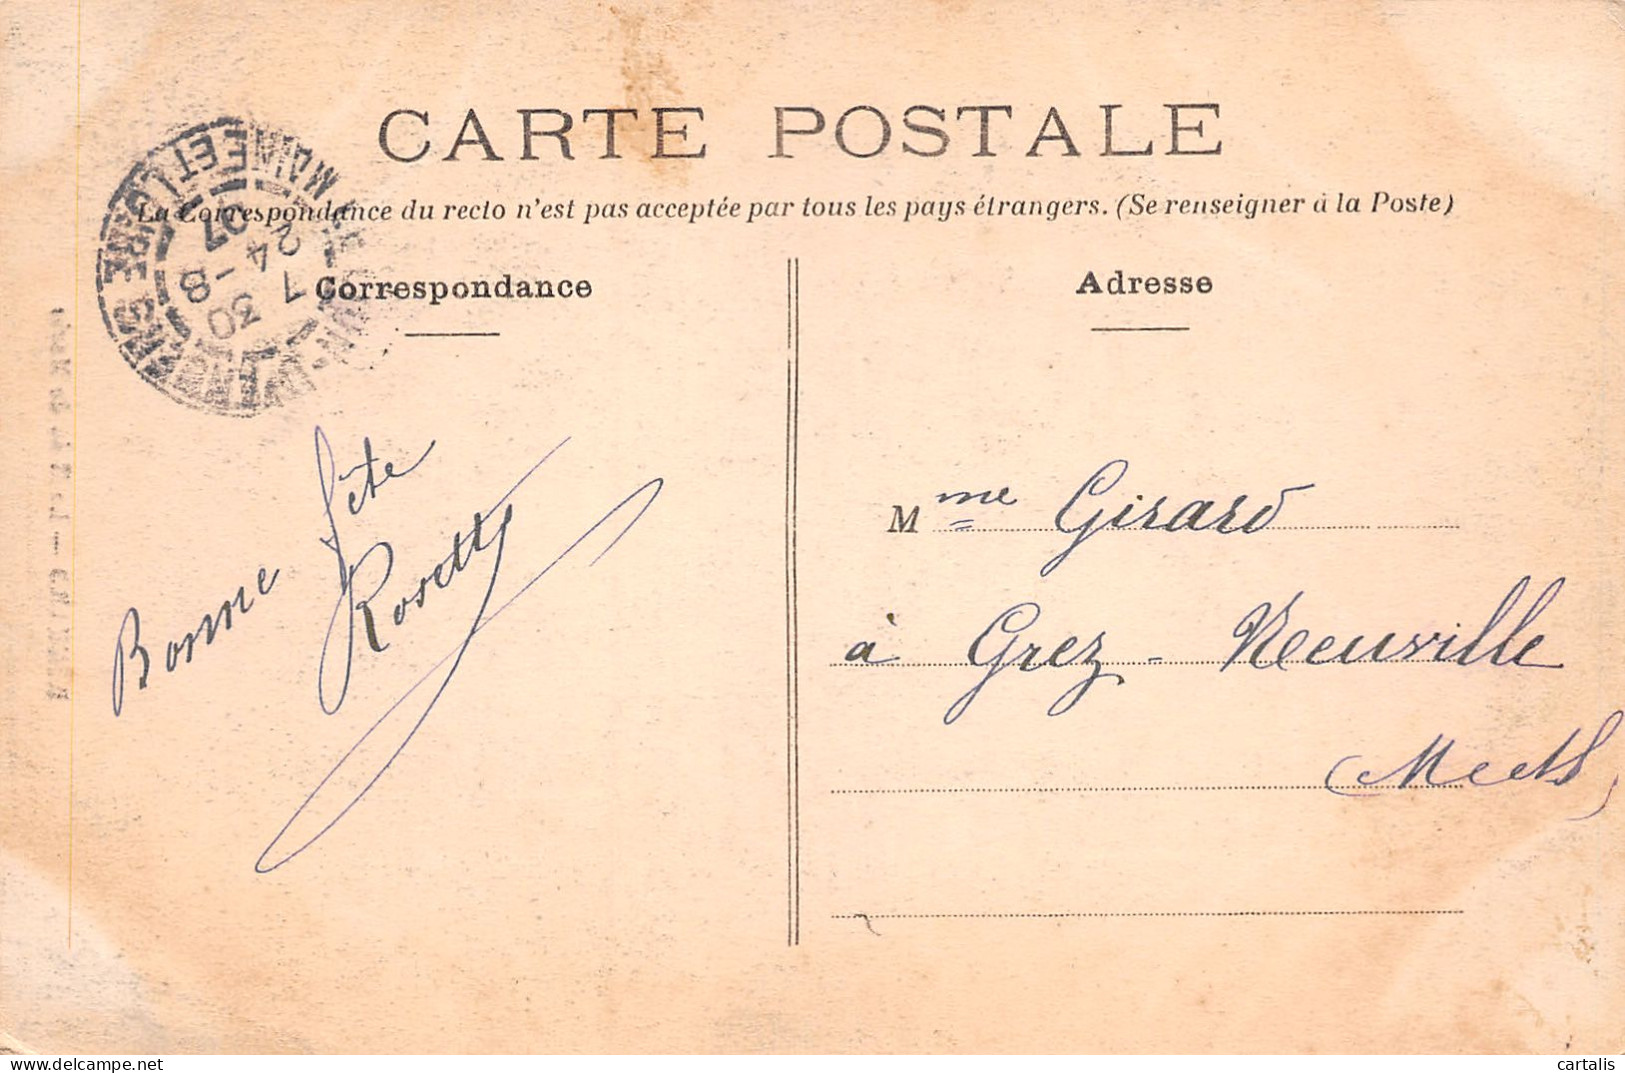 CARTE POSTALE
La Correspondance du recto n'est pas acceptée par tous les pays étrangers. (Se renseigner à la Poste)
Correspondance
Adresse
MAINE ET LOIRE
7 30
24 - 8
07
Bonne fête
Rosette
Mme Girard
à Grez-Neuville
cartalis